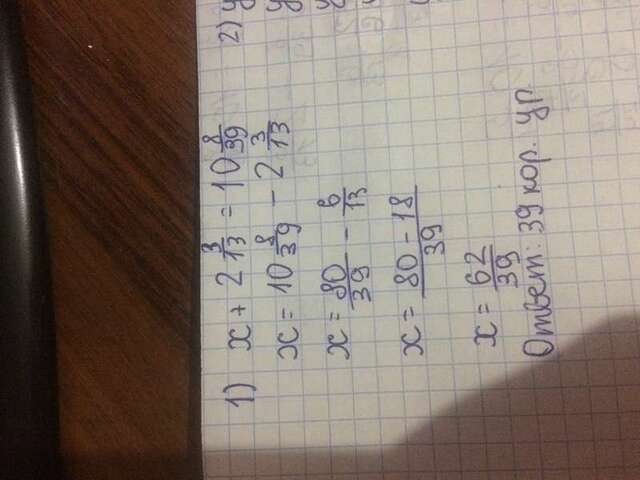 1) x + 2 3/13 = 10 8/39
x = 10 8/39 - 2 3/13
x = 80/39 - 6/13
x = (80 - 18)/39
x = 62/39
Ответ: 39 кор. ур.
2) y
y
y